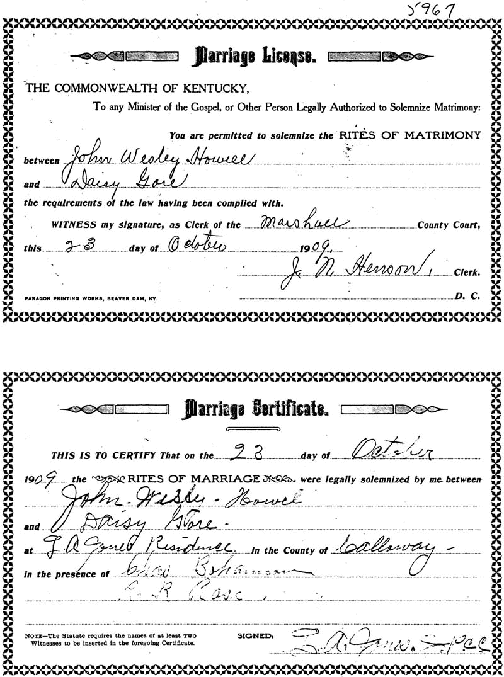 5967
Marriage License.
THE COMMONWEALTH OF KENTUCKY,
To any Minister of the Gospel, or Other Person Legally Authorized to Solemnize Matrimony:
You are permitted to solemnize the RITES OF MATRIMONY
between John Wesley Howell
and Daisy Gore
the requirements of the law having been complied with.
WITNESS my signature, as Clerk of the Marshall County Court,
this 23 day of October 1909.
J. N. Henson, Clerk.
PARAGON PRINTING WORKS, BEAVER DAM, KY D. C.
Marriage Certificate.
THIS IS TO CERTIFY That on the 23 day of October
1909 the RITES OF MARRIAGE were legally solemnized by me between
John Wesley Howel
and Daisy Gore
at Residence, in the County of Calloway
in the presence of
NOTE—The Statute requires the names of at least TWO
Witnesses to be inserted in the foregoing Certificate.
SIGNED: